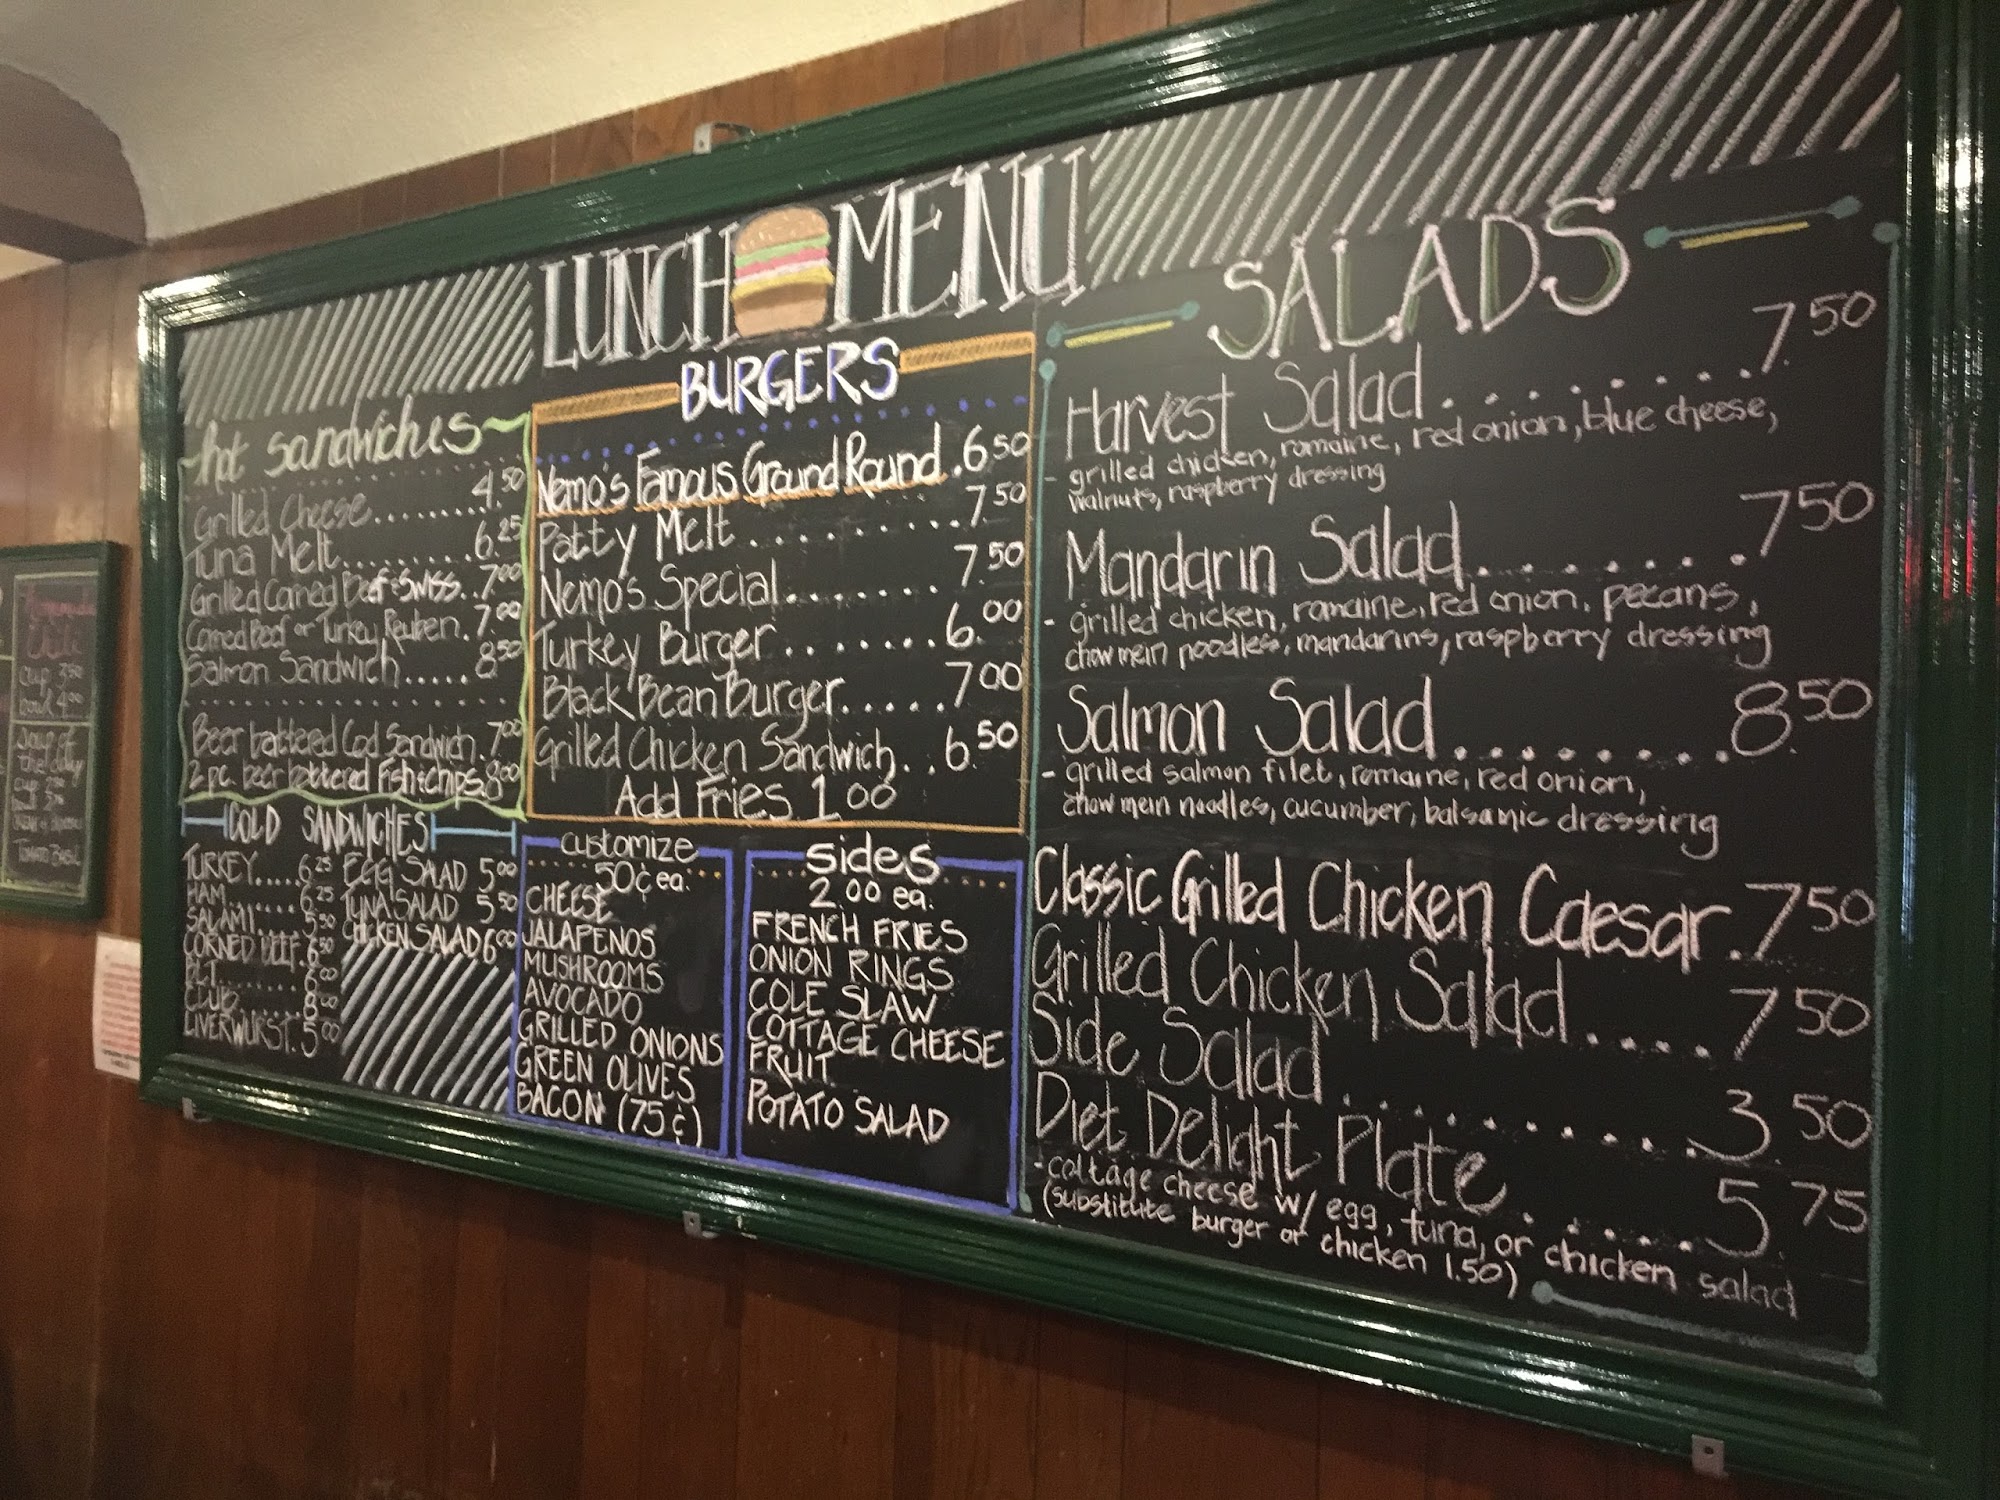 LUNCH MENU
hot sandwiches
Grilled Cheese......... 4.50
Tuna Melt......... 6.25
Grilled Corned Beef & Swiss.. 7.00
Corned Beef or Turkey Reuben. 7.00
Salmon Sandwich..... 8.50
Beer battered Cod Sandwich. 7.00
2 pc. beer battered Fish & chips. 8.00
COLD SANDWICHES
TURKEY..... 6.25
HAM....... 6.25
SALAMI.... 5.50
CORNED BEEF. 6.50
BLT....... 6.00
CLUB...... 8.00
LIVERWURST. 5.00
EGG SALAD 5.00
TUNA SALAD 5.50
CHICKEN SALAD 6.00
BURGERS
Nemo's Famous Ground Round. 6.50
Patty Melt......... 7.50
Nemo's Special....... 7.50
Turkey Burger....... 6.00
Black Bean Burger..... 7.00
Grilled Chicken Sandwich.. 6.50
Add Fries 1.00
customize
50¢ ea.
CHEESE
JALAPENOS
MUSHROOMS
AVOCADO
GRILLED ONIONS
GREEN OLIVES
BACON (75¢)
Sides
2.00 ea.
FRENCH FRIES
ONION RINGS
COLE SLAW
COTTAGE CHEESE
FRUIT
POTATO SALAD
SALADS
Harvest Salad......... 7.50
- grilled chicken, romaine, red onion, blue cheese,
walnuts, raspberry dressing
Mandarin Salad........ 7.50
- grilled chicken, romaine, red onion, pecans,
chow mein noodles, mandarins, raspberry dressing
Salmon Salad........ 8.50
- grilled salmon filet, romaine, red onion,
chow mein noodles, cucumber, balsamic dressing
Classic Grilled Chicken Caesar. 7.50
Grilled Chicken Salad.... 7.50
Side Salad.......... 3.50
Diet Delight Plate...... 5.75
- cottage cheese w/ egg, tuna, or chicken salad
(substitute burger or chicken 1.50)
cup 3.50
bowl 4.00
Soup of
the day
Tomato Basil